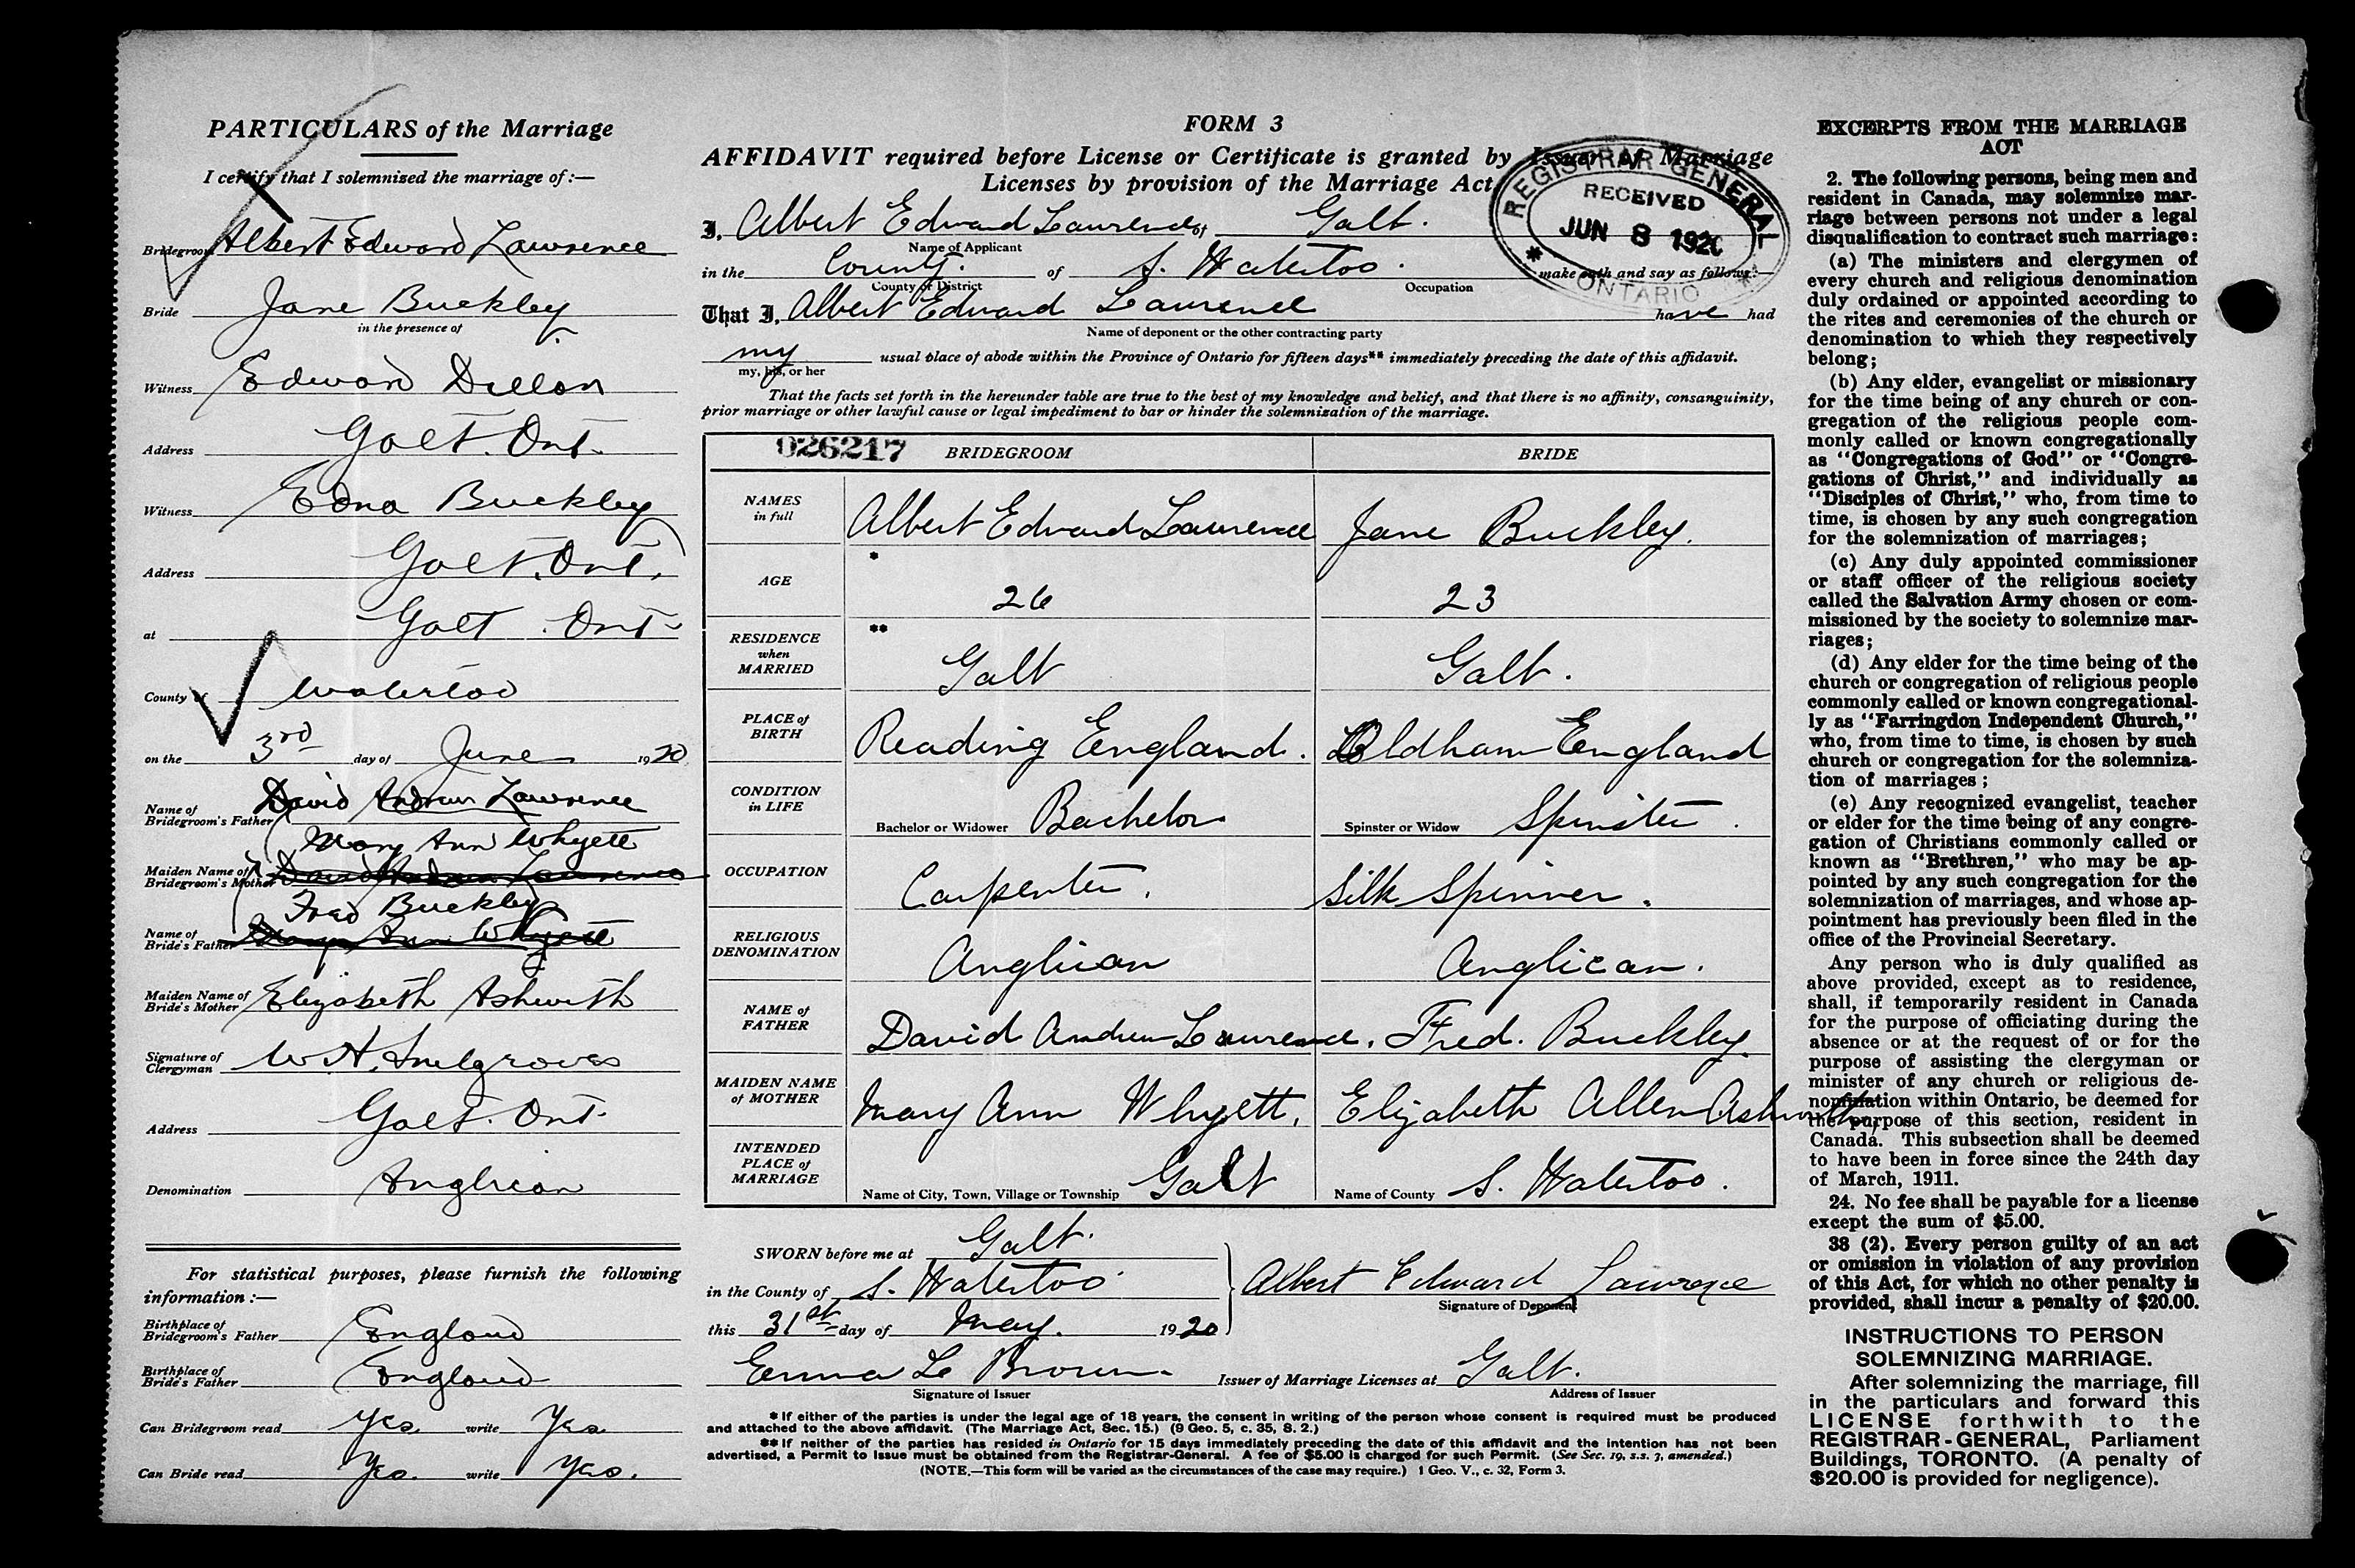 PARTICULARS of the Marriage
I certify that I solemnized the marriage of:—
Bridegroom Albert Edward Lawrence
Bride Jane Buckley
in the presence of
Witness Edward Dillon
Address Galt. Ont.
Witness Edna Buckley
Address Galt. Ont.
at Galt. Ont.
County of Waterloo
on the 3rd day of June 1920
David Andrew Lawrence
Name of
Bridegroom's Father
Mary Ann Whyett
Maiden Name of
Bridegroom's Mother David Andrew Lawrence
Fred Buckley
Name of
Bride's Father Mary Ann Whyett
Maiden Name of
Bride's Mother Elizabeth Ashworth
Signature of
Clergyman W. H. Snelgrove
Address Galt. Ont.
Denomination Anglican
For statistical purposes, please furnish the following
information :—
Birthplace of
Bridegroom's Father England
Birthplace of
Bride's Father England
Can Bridegroom read Yes write Yes
Can Bride read Yes. write Yes.
FORM 3
AFFIDAVIT required before License or Certificate is granted by Issuer of Marriage
Licenses by provision of the Marriage Act
REGISTRAR GENERAL
RECEIVED
JUN 8 1920
ONTARIO
I, Albert Edward Lawrence of Galt.
Name of Applicant
in the County. of S. Waterloo. make oath and say as follows:—
County or District Occupation
That I, Albert Edward Lawrence have had
Name of deponent or the other contracting party
my usual place of abode within the Province of Ontario for fifteen days** immediately preceding the date of this affidavit.
my, his, or her
That the facts set forth in the hereunder table are true to the best of my knowledge and belief, and that there is no affinity, consanguinity,
prior marriage or other lawful cause or legal impediment to bar or hinder the solemnization of the marriage.
026217 BRIDEGROOM BRIDE
NAMES
in full Albert Edward Lawrence Jane Buckley.
*
AGE 26 23
**
RESIDENCE
when
MARRIED Galt Galt.
PLACE of
BIRTH Reading England. Oldham England
CONDITION
in LIFE Bachelor or Widower Bachelor Spinster or Widow Spinster.
OCCUPATION Carpenter. Silk Spinner.
RELIGIOUS
DENOMINATION Anglican Anglican.
NAME of
FATHER David Andrew Lawrence. Fred. Buckley.
MAIDEN NAME
of MOTHER Mary Ann Whyett. Elizabeth Allen Ashworth
INTENDED
PLACE of
MARRIAGE Name of City, Town, Village or Township Galt Name of County S. Waterloo.
SWORN before me at Galt.
in the County of S. Waterloo
this 31st day of May. 1920
Albert Edward Lawrence
Signature of Deponent
Emma Le Brown Issuer of Marriage Licenses at Galt.
Signature of Issuer Address of Issuer
* If either of the parties is under the legal age of 18 years, the consent in writing of the person whose consent is required must be produced
and attached to the above affidavit. (The Marriage Act, Sec. 15.) (9 Geo. 5, c. 35, S. 2.)
** If neither of the parties has resided in Ontario for 15 days immediately preceding the date of this affidavit and the intention has not been
advertised, a Permit to Issue must be obtained from the Registrar-General. A fee of $5.00 is charged for such Permit. (See Sec. 19, s.s. 3, amended.)
(NOTE.—This form will be varied as the circumstances of the case may require.) 1 Geo. V., c. 32, Form 3.
EXCERPTS FROM THE MARRIAGE
ACT
2. The following persons, being men and
resident in Canada, may solemnize mar-
riage between persons not under a legal
disqualification to contract such marriage:
(a) The ministers and clergymen of
every church and religious denomination
duly ordained or appointed according to
the rites and ceremonies of the church or
denomination to which they respectively
belong;
(b) Any elder, evangelist or missionary
for the time being of any church or con-
gregation of the religious people com-
monly called or known congregationally
as "Congregations of God" or "Congre-
gations of Christ," and individually as
"Disciples of Christ," who, from time to
time, is chosen by any such congregation
for the solemnization of marriages;
(c) Any duly appointed commissioner
or staff officer of the religious society
called the Salvation Army chosen or com-
missioned by the society to solemnize mar-
riages;
(d) Any elder for the time being of the
church or congregation of religious people
commonly called or known congregational-
ly as "Farringdon Independent Church,"
who, from time to time, is chosen by such
church or congregation for the solemniza-
tion of marriages ;
(e) Any recognized evangelist, teacher
or elder for the time being of any congre-
gation of Christians commonly called or
known as "Brethren," who may be ap-
pointed by any such congregation for the
solemnization of marriages, and whose ap-
pointment has previously been filed in the
office of the Provincial Secretary.
Any person who is duly qualified as
above provided, except as to residence,
shall, if temporarily resident in Canada
for the purpose of officiating during the
absence or at the request of or for the
purpose of assisting the clergyman or
minister of any church or religious de-
nomination within Ontario, be deemed for
the purpose of this section, resident in
Canada. This subsection shall be deemed
to have been in force since the 24th day
of March, 1911.
24. No fee shall be payable for a license
except the sum of $5.00.
38 (2). Every person guilty of an act
or omission in violation of any provision
of this Act, for which no other penalty is
provided, shall incur a penalty of $20.00.
INSTRUCTIONS TO PERSON
SOLEMNIZING MARRIAGE.
After solemnizing the marriage, fill
in the particulars and forward this
LICENSE forthwith to the
REGISTRAR-GENERAL, Parliament
Buildings, TORONTO. (A penalty of
$20.00 is provided for negligence).